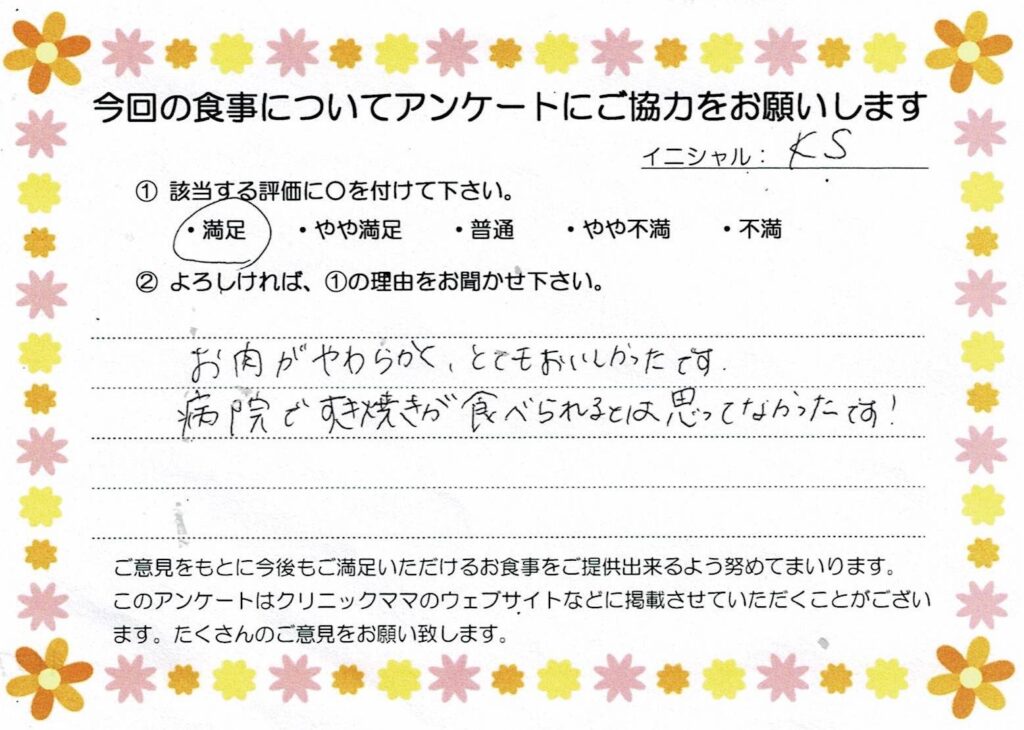 今回の食事についてアンケートにご協力をお願いします
イニシャル： KS
① 該当する評価に〇を付けて下さい。
・満足 ・やや満足 ・普通 ・やや不満 ・不満
② よろしければ、①の理由をお聞かせ下さい。
お肉がやわらかく、とてもおいしかったです.
病院ですき焼きが食べられるとは思ってなかったです！
ご意見をもとに今後もご満足いただけるお食事をご提供出来るよう努めてまいります。
このアンケートはクリニックママのウェブサイトなどに掲載させていただくことがござい
ます。たくさんのご意見をお願い致します。